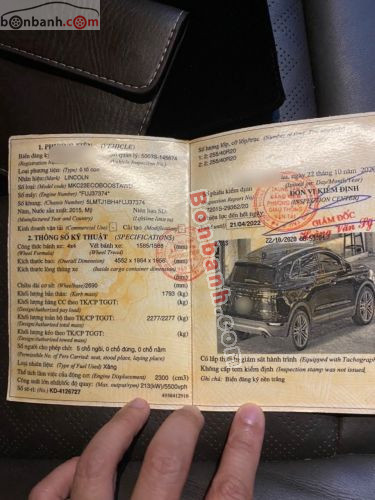 bonbanh.com
Ô TÔ
Bonbanh.com
1. PHƯƠNG TIỆN (VEHICLE)
Biển đăng ký
(Registration N
Số quản lý: 5003S-145674
(Vehicle Inspection No.)
Loại phương tiện: (Type) ô tô con
Nhãn hiệu: (Mark) LINCOLN
Số loại: (Model code) MKC23ECOBOOSTAWD
Số máy: (Engine Number) *FUJ37374*
Số khung: (Chassis Number) 5LMTJ1BH4FUJ37374
Năm, Nước sản xuất: 2015, Mỹ
Niên hạn SD:
(Manufactured Year and Country)
(Lifetime limit to
Kinh doanh vận tải (Commercial Use)
Cải tạo (Modification)
2. THÔNG SỐ KỸ THUẬT (SPECIFICATIONS)
Công thức bánh xe: 4x4
Vết bánh xe: 1585/1585 (mm)
(Wheel Formula)
(Wheel Tread)
Kích thước bao: (Overall Dimension) 4552 x 1864 x 1656 (mm)
Kích thước lòng thùng xe (mm)
(Inside cargo container dimension)
Chiều dài cơ sở: (Wheelbase) 2690 (mm)
Khối lượng bản thân: (Kerb mass) 1793 (kg)
Khối lượng hàng CC theo TK/CP TGGT: (kg)
(Design/Authorized pay load)
Khối lượng toàn bộ theo TK/CP TGGT: 2277/2277 (kg)
(Design/Authorized total mass)
Khối lượng kéo theo TK/CP TGGT: (kg)
(Design/Authorized towed mass)
Số người cho phép chở: 5 chỗ ngồi, 0 chỗ đứng, 0 chỗ nằm
(Permissible No. of Pers Carried: seat, stood place, laying place)
Loại nhiên liệu: (Type of Fuel Used) Xăng
Thể tích làm việc của động cơ: (Engine Displacement) 2300 (cm3)
Công suất lớn nhất/tốc độ quay: (Max. output/rpm) 213(kW)/5500vph
Số sê-ri: (No.) KD-4126727
Số lượng lốp, cỡ lốp/trục
1: 2; 255/40R20
2: 2; 255/40R20
22 tháng 10 năm 2020
(Issued on: Day/Month/Year)
phiếu kiểm định
ĐƠN VỊ KIỂM ĐỊNH
(INSPECTION CENTER)
lực đến hết ngày
21/04/2022
GIÁM ĐỐC
22/10/2020
Có lắp thiết bị giám sát hành trình (Equipped with Tachograph)
Không cấp tem kiểm định (Inspection stamp was not issued)
Ghi chú: Biển đăng ký nền trắng